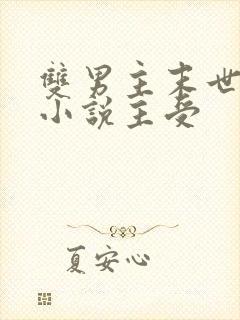 雙男主末世
小說主受
夏安心